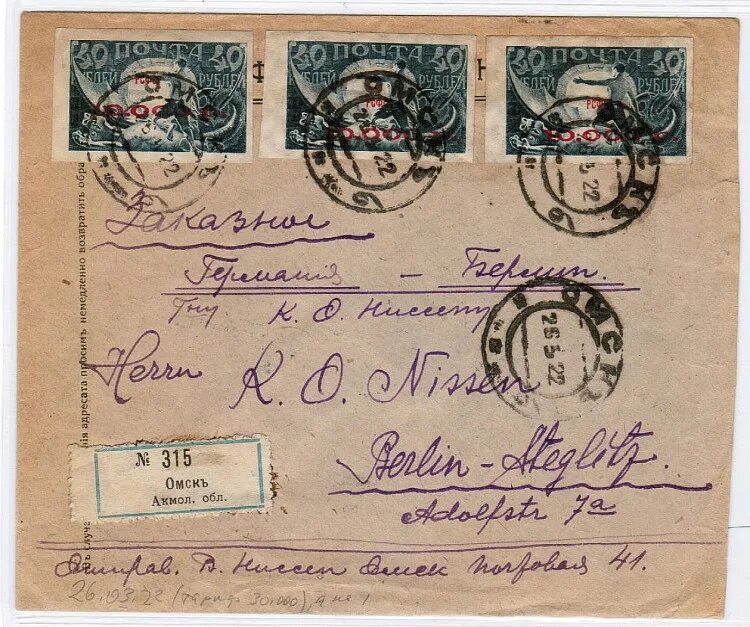 40 ПОЧТА 40
РУБЛЕЙ РУБЛЕЙ
РСФСР
10.000 р
40 ПОЧТА 40
РУБЛЕЙ РУБЛЕЙ
РСФСР
10.000 р
40 ПОЧТА 40
РУБЛЕЙ РУБЛЕЙ
РСФСР
10.000 р
ОМСКЪ
22
ОМСКЪ
22
ОМСКЪ
5 22
Заказное
Германія – Берлин.
Гну К. О. Ниссену
ОМСКЪ
26 5 22
Herrn K. O. Nissen
Berlin-Steglitz.
Adolfstr 7a
№ 315
Омскъ
Акмол. обл.
адресата просимъ немедленно возвратить обра
Отправ. В. Ниссен Омск 41.
26.03.22 (тариф 30.000),